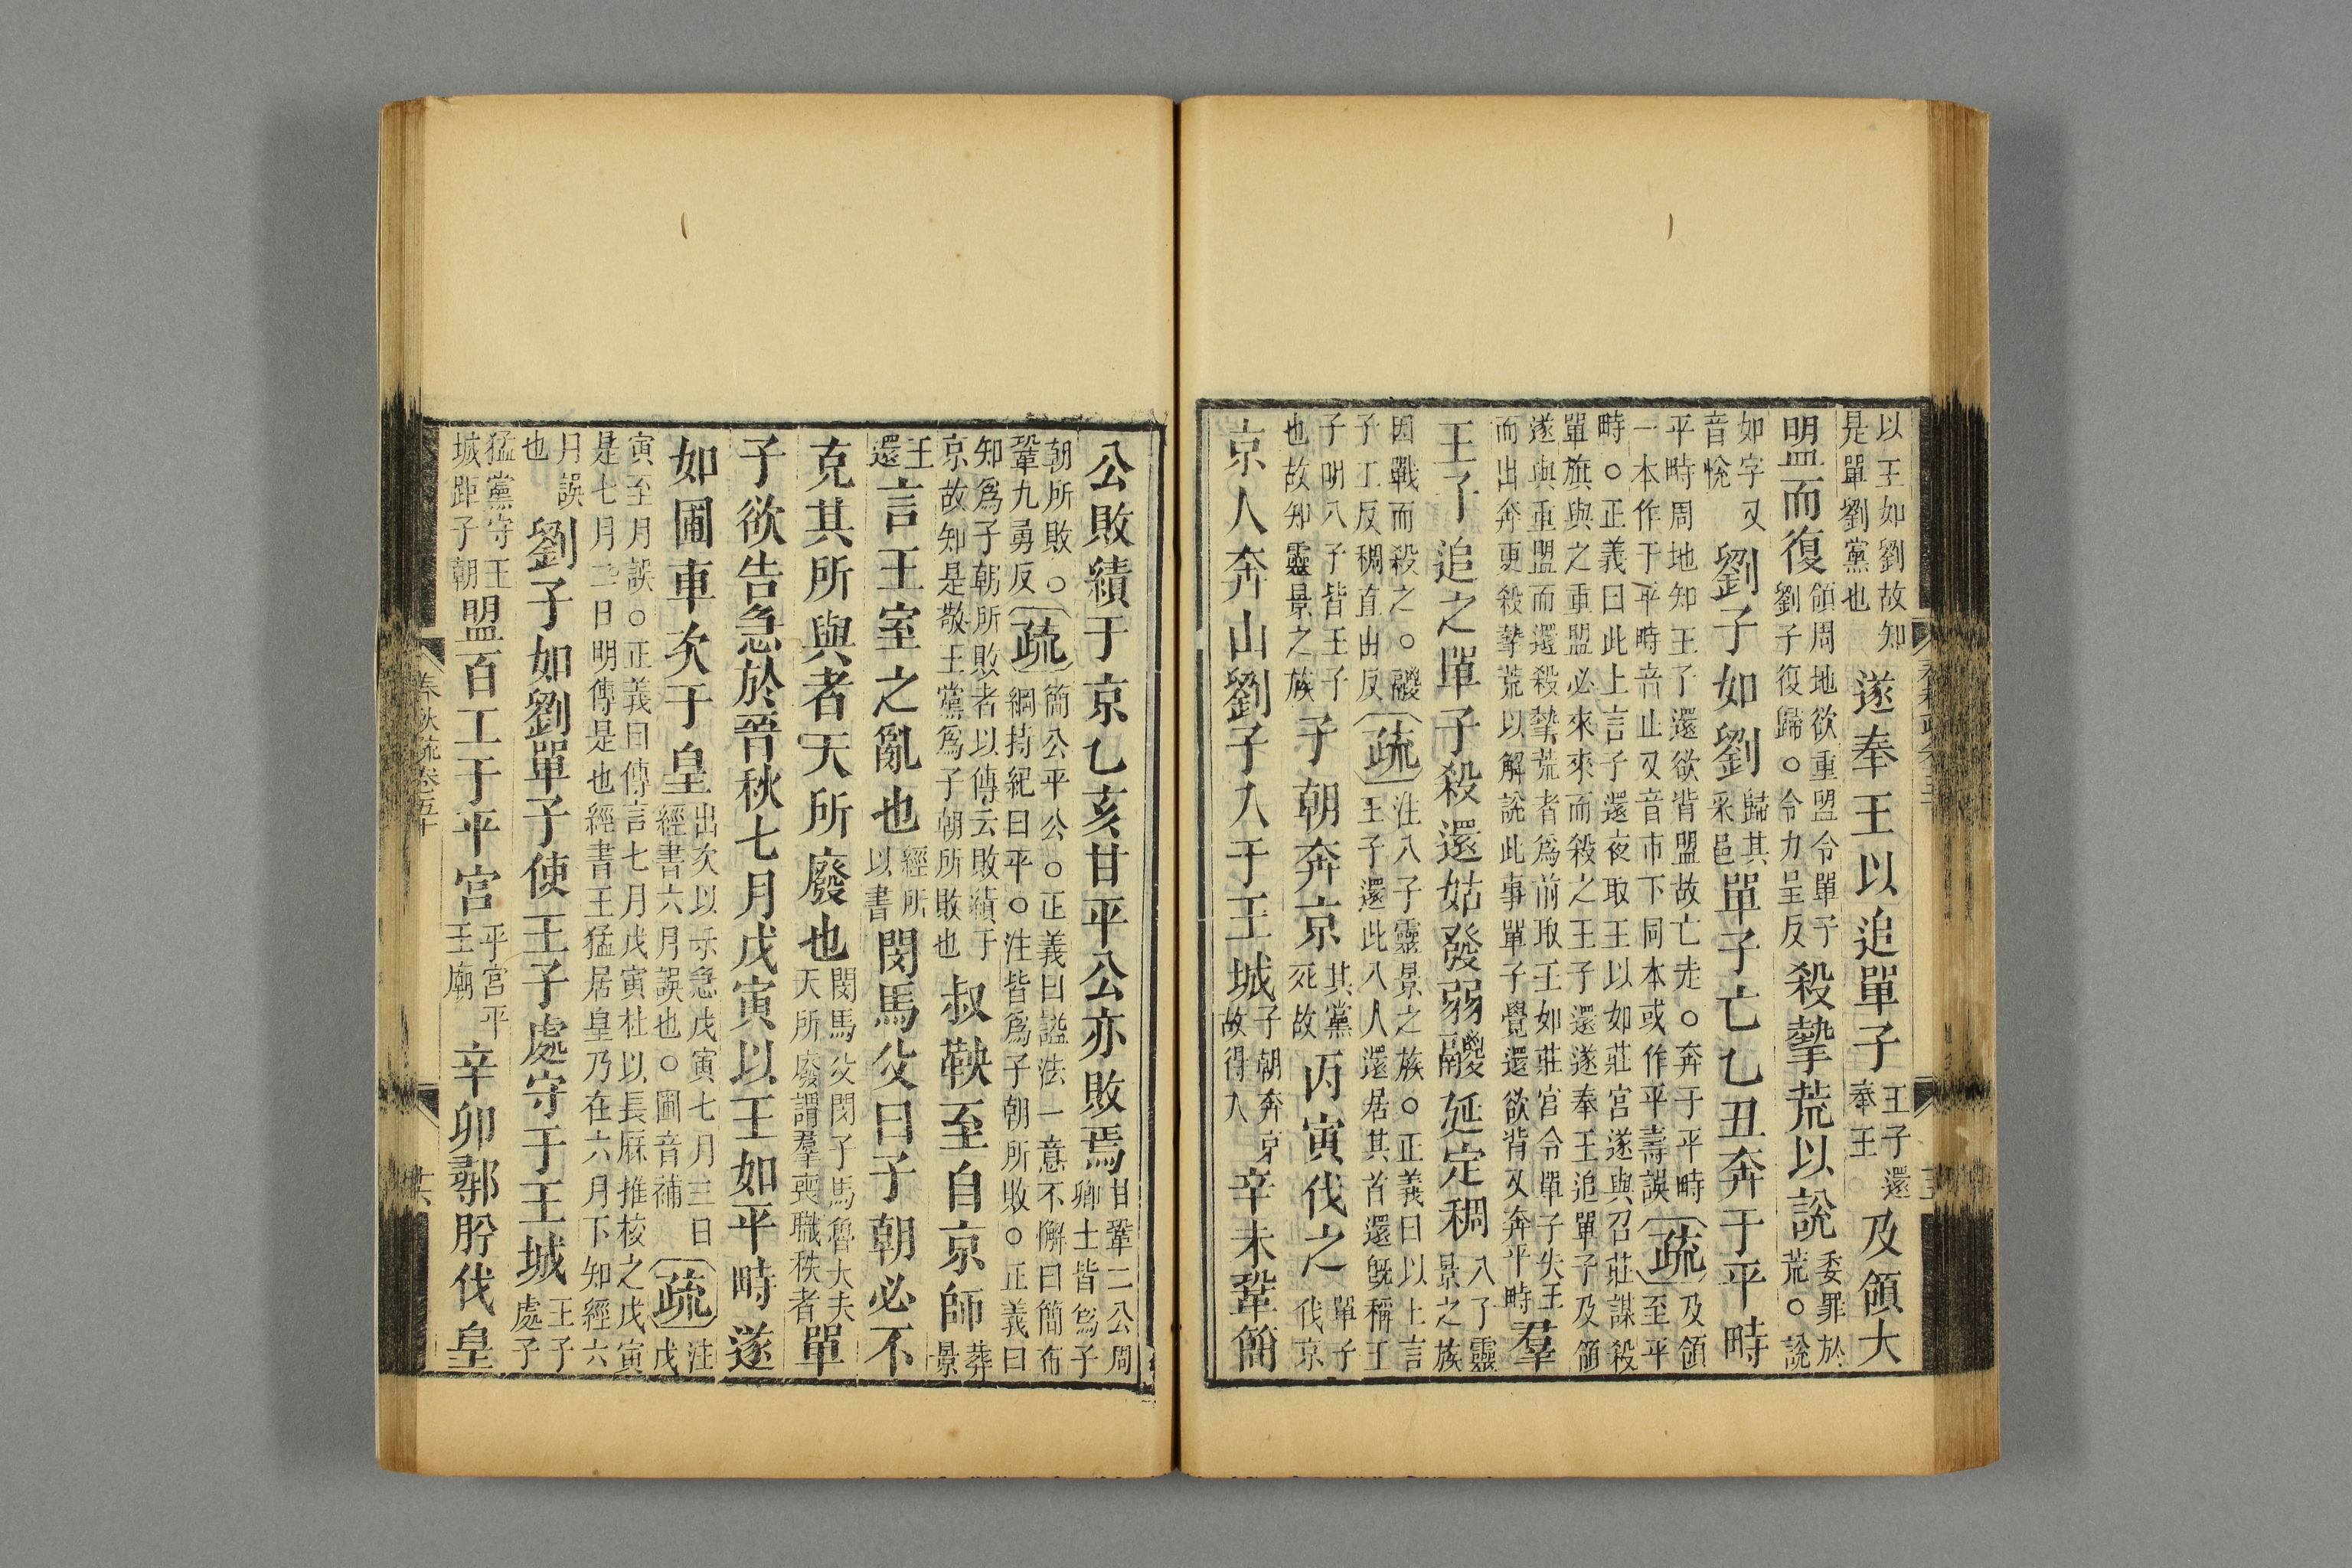 以王如劉故知
是單劉黨也
遂奉王以追單子
王子還
奉王
及領大
盟而復
領周地欲重盟令單子
劉子復歸○令力呈反
殺摯荒以說
委罪於
荒○說
如字又
音悅
劉子如劉
歸其
采邑
單子亡乙丑奔于平畤
平畤周地知王子還欲背盟故亡走○奔于平畤
一本作于平畤音止又音市下同本或作平壽誤
疏
及領
至平
畤○正義曰此上言子還夜取王以如莊宮遂與召莊謀殺
單旗與之重盟必來來而殺之王子還遂奉王追單子及領
遂與重盟而還殺摯荒者為前取王如莊宮令單子失王
而出奔更殺摯荒以解說此事單子覺還欲背又奔平畤
羣
王子追之單子殺還姑發弱鬷延定稠
八子靈
景之族
因戰而殺之○鬷
子工反稠直由反
疏
注八子靈景之族○正義曰以上言
王子還此八人還居其首還旣稱王
子明八子皆王子
也故知靈景之族
子朝奔京
其黨
死故
丙寅伐之
單子
伐京
京人奔山劉子入于王城
子朝奔京
故得入
辛未鞏簡
公敗績于京乙亥甘平公亦敗焉
甘鞏二公周
卿士皆為子
朝所敗○
鞏九勇反
疏
簡公平公○正義曰諡法一意不懈曰簡布
綱持紀曰平○注皆為子朝所敗○正義曰
知為子朝所敗者以傳云敗績于
京故知是敬王黨為子朝所敗也
叔鞅至自京師
葬
景
王
還
言王室之亂也
經所
以書
閔馬父曰子朝必不
克其所與者天所廢也
閔馬父閔子馬魯大夫
天所廢謂羣喪職秩者
單
子欲告急於晉秋七月戊寅以王如平畤遂
如圃車次于皇
出次以示急戊寅七月三日
經書六月誤也○圃音補
疏
注
戊
寅至月誤○正義曰傳言七月戊寅杜以長厤推校之戊寅
是七月三日明傳是也經書王猛居皇乃在六月下知經六
月誤
也
劉子如劉單子使王子處守于王城
王子
處子
猛黨守王
城距子朝
盟百工于平宮
平宮平
王廟
辛卯鄩肸伐皇
春秋疏卷五十